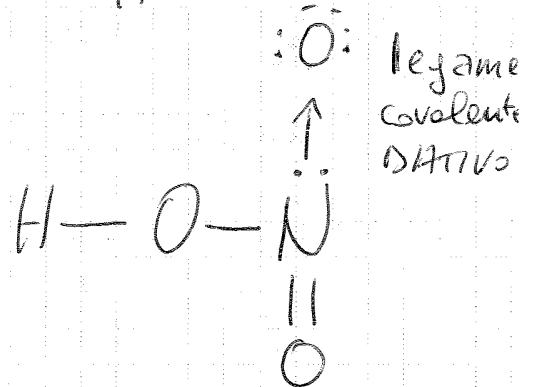 :O: legame
covalente
DATIVO
H — O — N
||
O